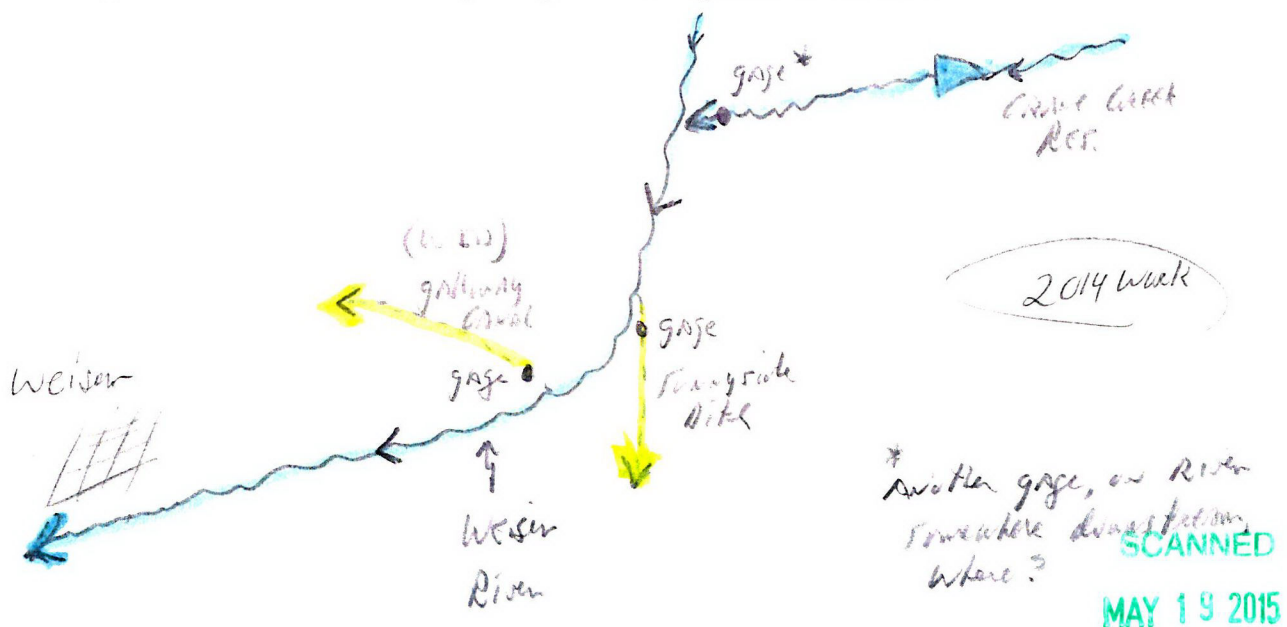 gage *
Crane Creek
Res.
2014 work
(WID)
gallway
Canal
gage
gage
Sunnyside
Ditch
Weiser
Weiser
River
* Another gage, on River
somewhere downstream,
where?
SCANNED
MAY 19 2015